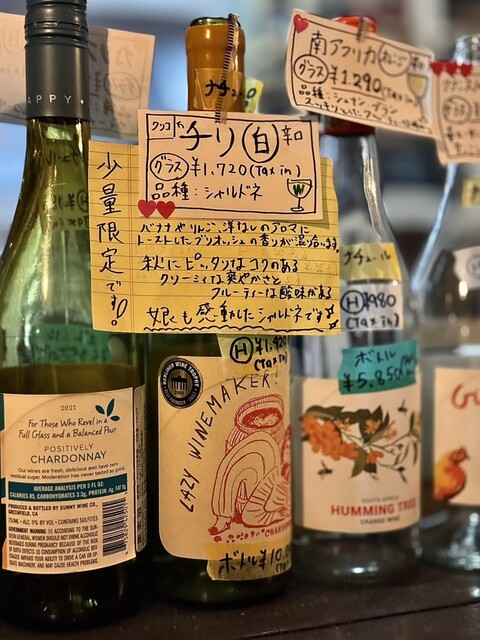 APPY
2021
For Those Who Revel in a
Full Glass and a Balanced Pour
POSITIVELY
CHARDONNAY
Our wines are fresh, delicious and have zero
residual sugar. Moderation has never tasted so good.
AVERAGE ANALYSIS PER 5 FL OZ.
CALORIES 85, CARBOHYDRATES 3.3g, PROTEIN .4g, FAT 0g
PRODUCED & BOTTLED BY SUNNY WINE CO.,
GREENFIELD, CA
750ML • ALC 9% BY VOL • CONTAINS SULFITES
GOVERNMENT WARNING:
ナチュ
チリ(白)辛口
グラス ¥1,720(Tax in)
品種:シャルドネ
W
少量限定です!
バナナやりんご、洋なしのアロマに
トーストしたブリオッシュの香りが混り合います。
秋にピッタリなコクのある
クリーミィな爽やかさと
フルーティーな酸味がある
娘も感動したシャルドネです
H ¥1,420
(Tax in)
BERLINER WINE TROPHY
LAZY WINEMAKER
ボトル¥10,
南アフリカ
グラス ¥1.290(Tax in)
品種:シュナンブラン
ナチュール
H ¥980
(Tax in)
ボトル
¥5.850
SOUTH AFRICA
HUMMING TREE
ORANGE WINE
Gu